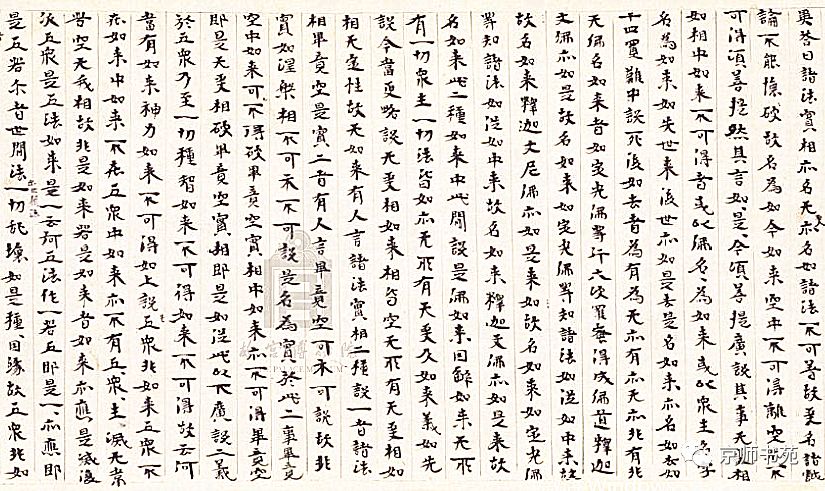 異答曰諸法實相亦名无亦名如諸法不可著故更名諸戲
論不能懷破故名為如今如来空中不可得離空亦不
可得須菩提然其言如是今須菩提廣說其事无受相
如相中如来不可得者或以佛名名為如来或以衆生名字
名為如来如先世来後世亦如是去是名如来亦名如去如
十四置難中說死後如去者為有為无亦有亦无亦非有非
无佛名如来者如定光佛等行六波羅蜜得成佛道釋迦
文佛亦如是故名如来如定光佛等知諸法如從如中来故
故名如来釋迦文尼佛亦如是来故名如来如定光佛
等知諸法如從如中来故名如来釋迦文佛亦如是来故
名如来此二種如来中此間說是佛如来因解如来无所
有一切衆生一切法皆如亦无所有无受及如来義如先
說今當更略說无受相如来相皆空无所有无受相如
相无定性故无如来有人言諸法實相二種說一者諸法
相畢竟空是實二者有人言畢竟空可示可說故非
實如涅槃相不可示不可說是名為實於此二事畢竟
空中如来不可得破畢竟空實相中如来亦不可得畢竟空
即是无受相破畢竟空實相即是如從此以下廣說二義
於五衆乃至一切種智如来不可得如来不可得故云何
當有如来神力如来不可得如上說五衆非如来五衆不
在如来中如来不在五衆中如来亦不有五衆生滅无常
苦空无我相故非是如来若是如来者如来亦應是滅復
次五衆是五法如来是一云何五法作一若五即是一一亦應即
是五若尒者世間法一切乱壞如是種因緣故五衆非如
京师书苑